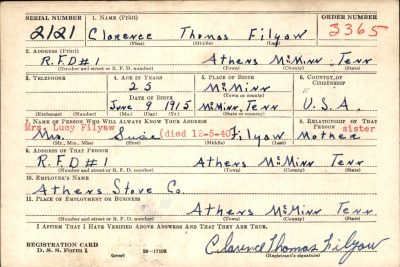 SERIAL NUMBER 1. NAME (Print) ORDER NUMBER
2121 Clarence Thomas Filyaw 3365
(First) (Middle) (Last)
2. ADDRESS (Print)
R.F.D #1 Athens McMinn Tenn
(Number and street or R. F. D. number) (Town) (County) (State)
3. TELEPHONE 4. AGE IN YEARS 5. PLACE OF BIRTH 6. COUNTRY OF CITIZENSHIP
25 McMinn
DATE OF BIRTH (Town or county)
June 9 1915 McMinn, Tenn U.S.A.
(Mo.) (Day) (Yr.) (State or country)
7. NAME OF PERSON WHO WILL ALWAYS KNOW YOUR ADDRESS 8. RELATIONSHIP OF THAT PERSON
Mrs. Lucy Filyaw sister
Mrs Susie (died 12-5-40) Filyaw Mother
(Mr., Mrs., Miss) (First) (Middle) (Last)
9. ADDRESS OF THAT PERSON
R.F.D #1 Athens McMinn Tenn
(Number and street or R. F. D. number) (Town) (County) (State)
10. EMPLOYER'S NAME
Athens Stove Co.
11. PLACE OF EMPLOYMENT OR BUSINESS
Athens McMinn Tenn
(Number and street or R. F. D. number) (Town) (County) (State)
I AFFIRM THAT I HAVE VERIFIED ABOVE ANSWERS AND THAT THEY ARE TRUE.
REGISTRATION CARD
D. S. S. Form 1 (over) 16—17105 Clarence Thomas Filyaw
(Registrant's signature)